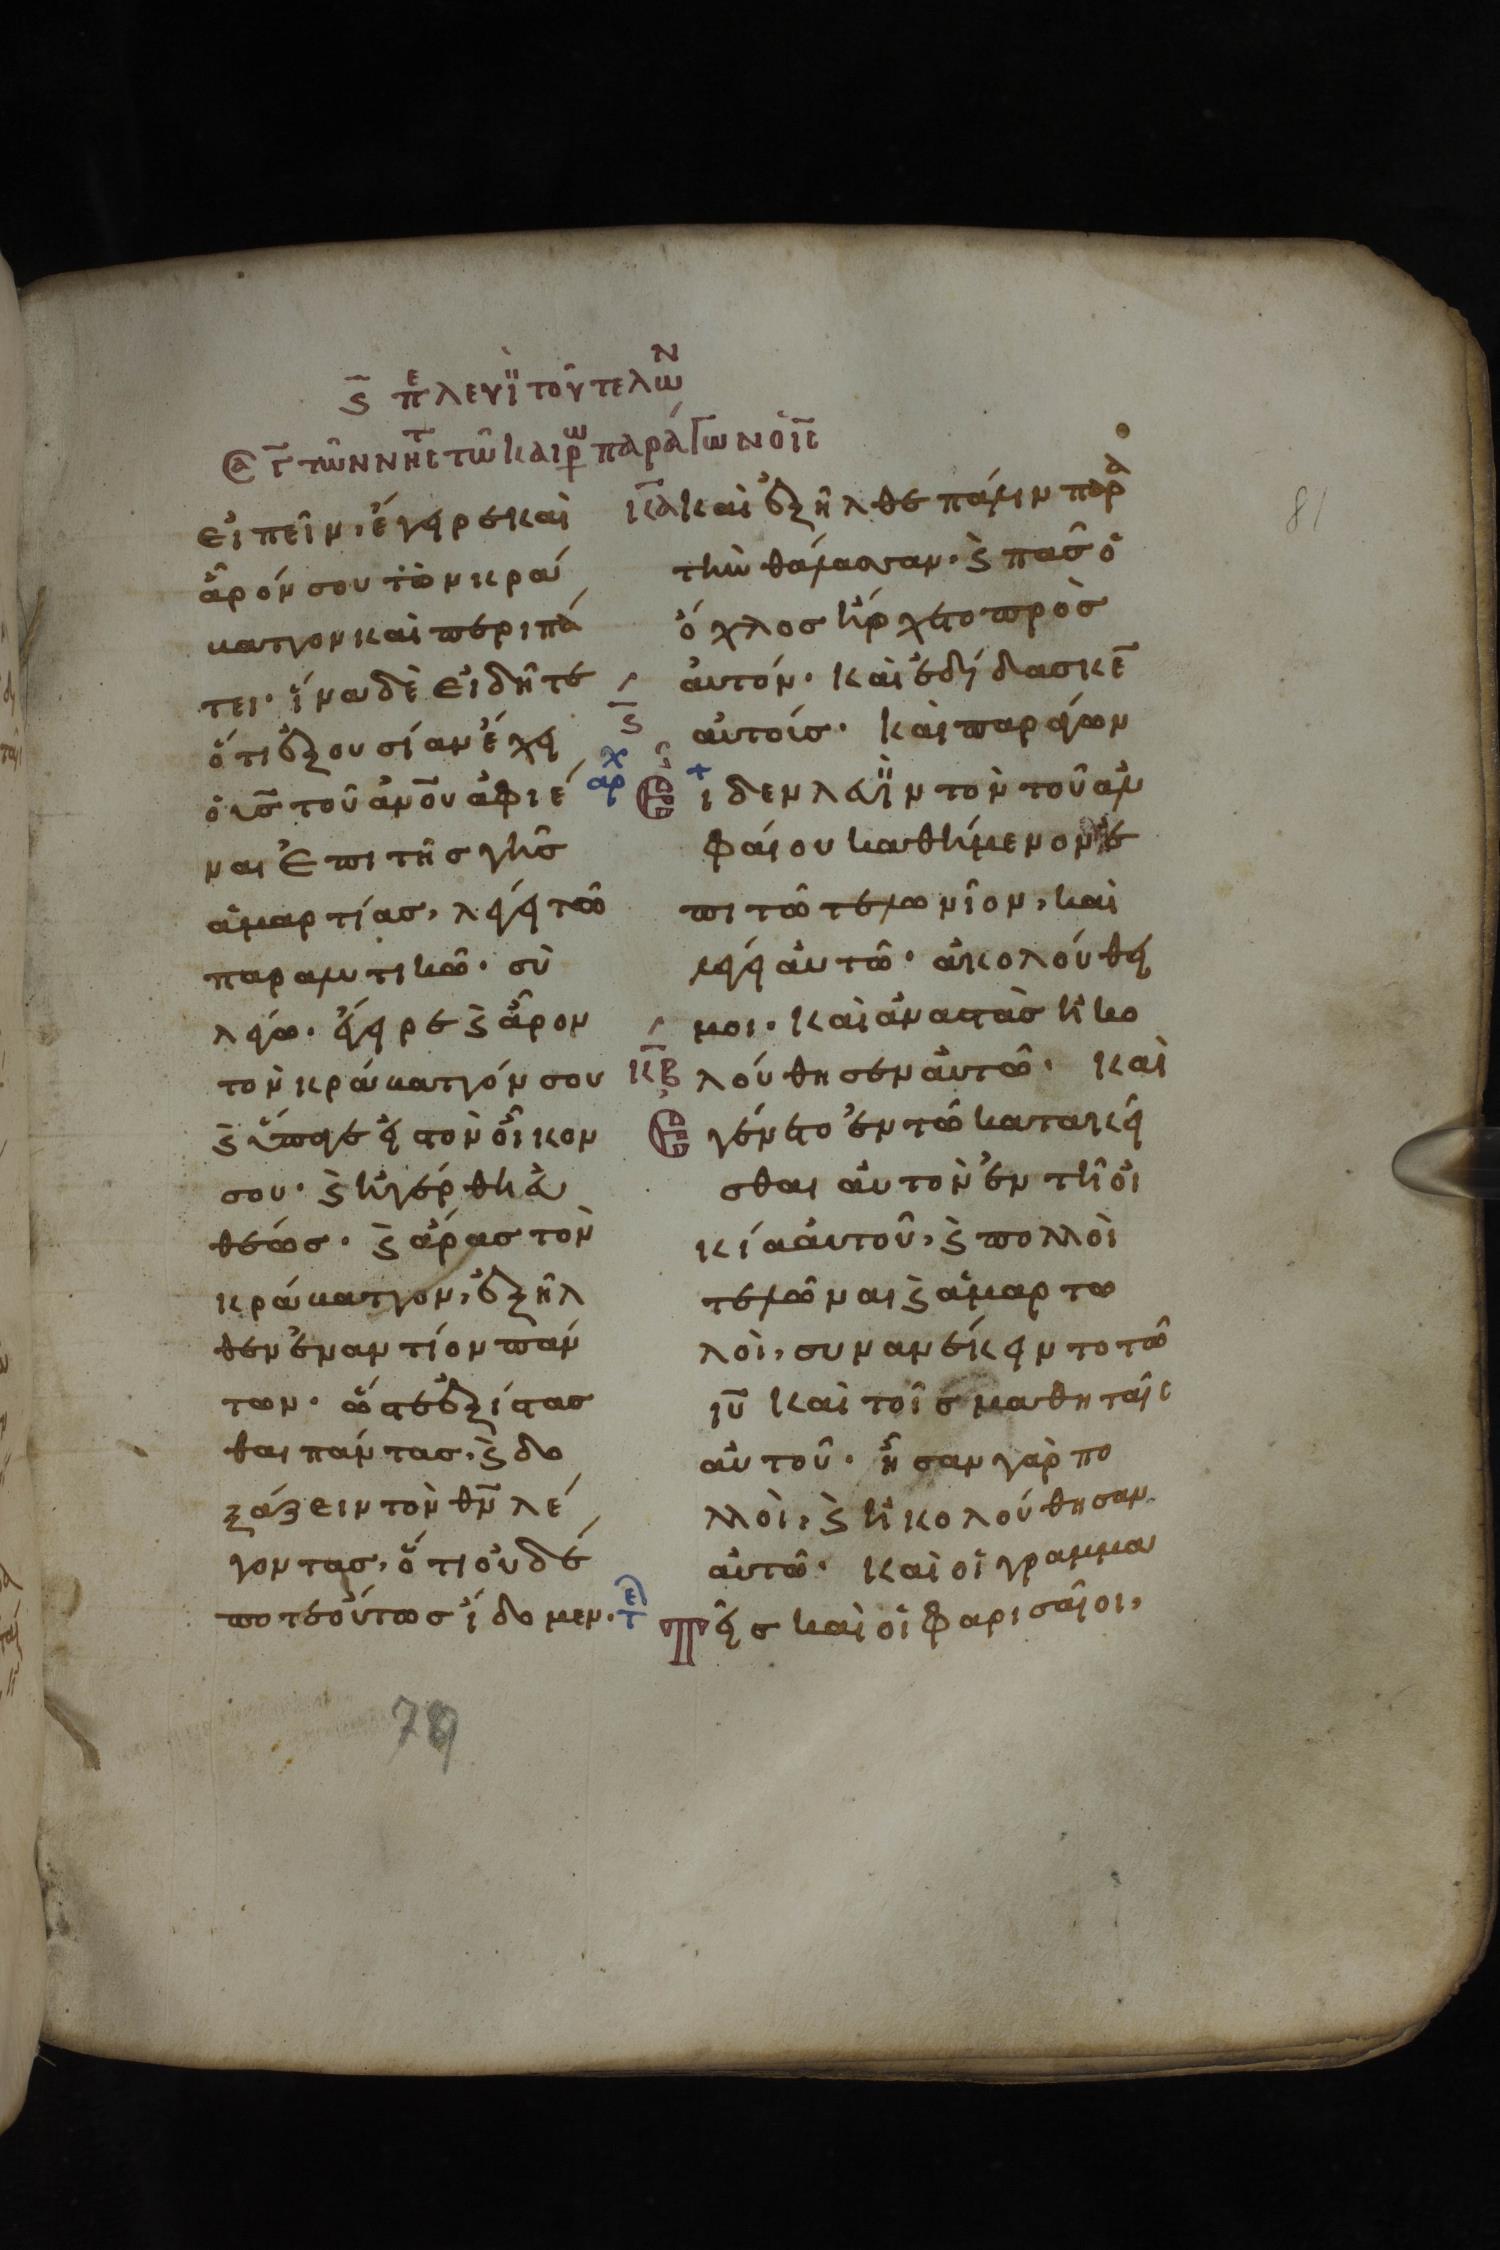 ϛ̄ πε λευῒ τοῦ τελών
σα γ̄ τῶν νηστ τῶ καιρω παράγων ὁ ι̅ς̅
εἰπεῖν, ἔγειρε καὶ
ἆρόν σου τὸν κρά
βαττον καὶ περιπά
τει· ἵνα δὲ εἰδῆτε
ὅτι ἐξουσίαν ἔχει
ὁ υ̅ς̅ τοῦ α̅ν̅ο̅υ̅ ἀφιέ
ναι ἐπι τῆς γῆς
ἁμαρτίας, λέγει τῶ
παραλυτικῶ· σὺ
λέγω· ἔγειρε ϗ ἆρον
τὸν κράβαττόν σου
ϗ ὕπαγε εἰς τὸν οἶκον
σου· ϗ ἠγέρθη εὐ
θέως· ϗ ἄρας τὸν
κράβαττον, ἐξῆλ
θεν ἐναντίον πάν
των· ὥστε ἐξίστασ
θαι πάντας, ϗ δο
ξάζειν τὸν θ̅ν̅ λέ
γοντας, ὅτι οὐδέ
ποτε οὕτως ἴδομεν· τε
κ̅α̅ καὶ ἐξῆλθε πάλιν παρα
τὴν θάλασσαν· ϗ πᾶς ὁ
ὄχλος ἤρχετο πρὸς
αὐτόν· καὶ ἐδίδασκε̅
αὐτοίς· καὶ παράγων
ϛ̄
αρχ
Εἶδεν λευῒν τὸν τοῦ ἀλ
φαίου καθήμενον ἐ
πι τῶ τελωνῖον, καὶ
λέγει αὐτῶ· ἀκολούθει
μοι· καὶ ἀναστὰς ἠκο
κ̅β̅ λούθησεν αὐτῶ· καὶ
Εγένετο ἐν τῶ κατακεῖ
σθαι αὐτὸν ἐν τῆ οἰ
κία αὐτοῦ, ϗ πολλοὶ
τελῶναι ϗ ἁμαρτω
λοὶ, συνανέκειντο τῶ
ι̅υ̅ καὶ τοῖς μαθηταῖς
αὐτοῦ· ἦσαν γὰρ πο
λλοὶ, ϗ ἠκολούθησαν
αὐτῶ· καὶ οἱ γραμμα
Τεῖς καὶ οἱ φαρισαῖοι,
81
79